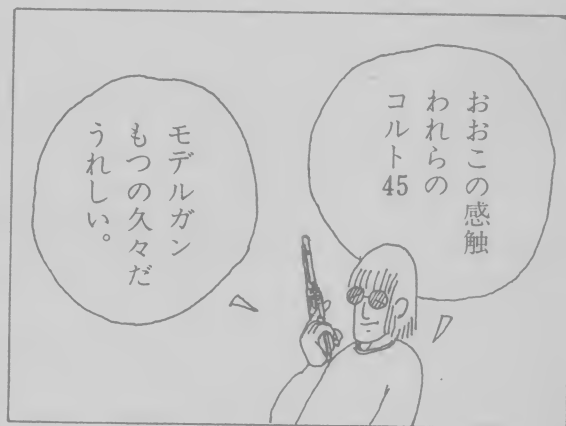 おおこの感触
われらの
コルト45
モデルガン
もつの久々だ
うれしい。